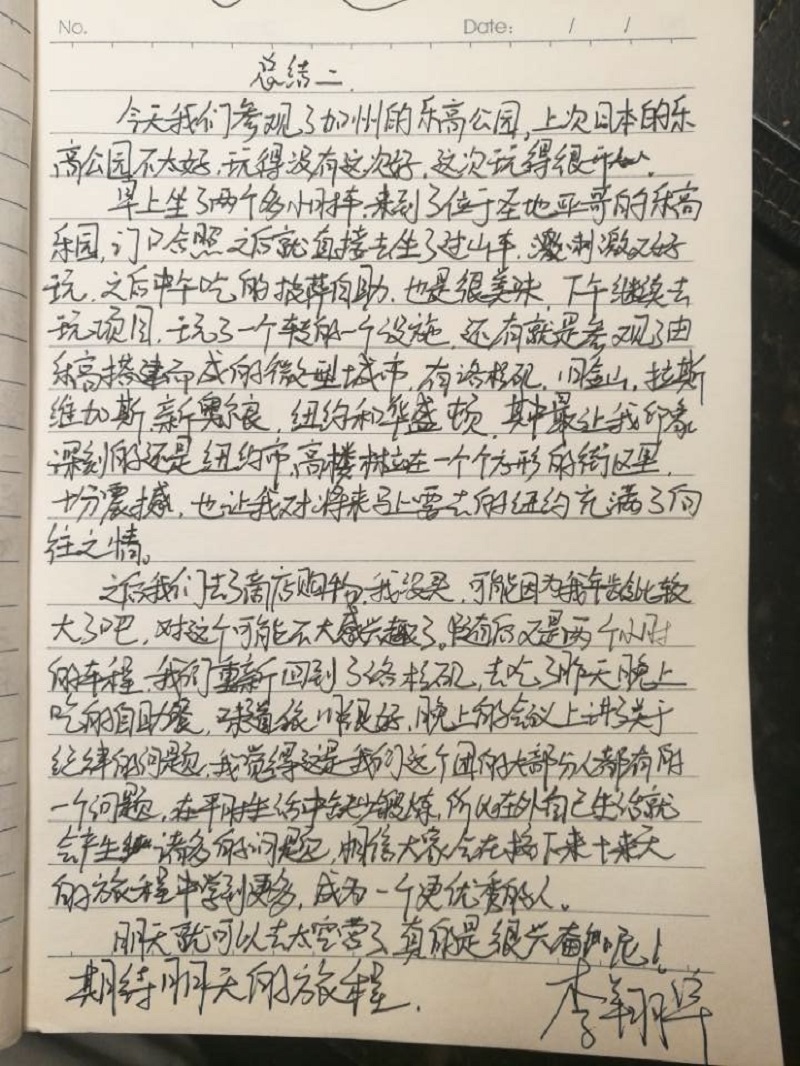 No. Date: / /
总结二.
今天我们参观了加州的乐高公园,上次日本的乐
高公园不太好,玩得没有这次好,这次玩得很开心.
早上坐了两个多小时车,来到了位于圣地亚哥的乐高
乐园,门口合照之后就直接去坐了过山车,刺激又好
玩.之后中午吃的披萨自助,也是很美味,下午继续去
玩项目,玩了一个转的一个设施,还有就是参观了由
乐高搭建而成的微型城市,有洛杉矶,旧金山,拉斯
维加斯,新奥尔良,纽约和华盛顿,其中最让我印象
深刻的还是纽约市,高楼林立在一个个方形的街区里,
十分震撼,也让我对将来马上要去的纽约充满了向
往之情。
之后我们去了商店购物,我没买,可能因为我年龄比较
大了吧,对这个可能不太感兴趣了。最后又是两个小时
的车程,我们重新回到了洛杉矶,去吃了昨天晚上
吃的自助餐,味道依旧很好,晚上的会议上讲了关于
纪律的问题,我觉得这是我们这个团的大部分人都有的
一个问题,在平时生活中缺少锻炼,所以在外自己生活就
会产生诸多的问题,相信大家会在接下来十来天
的旅程中学到更多,成为一个更优秀的人。
明天就可以去太空营了,真的是很兴奋呢!
期待明天的旅程. 李翔